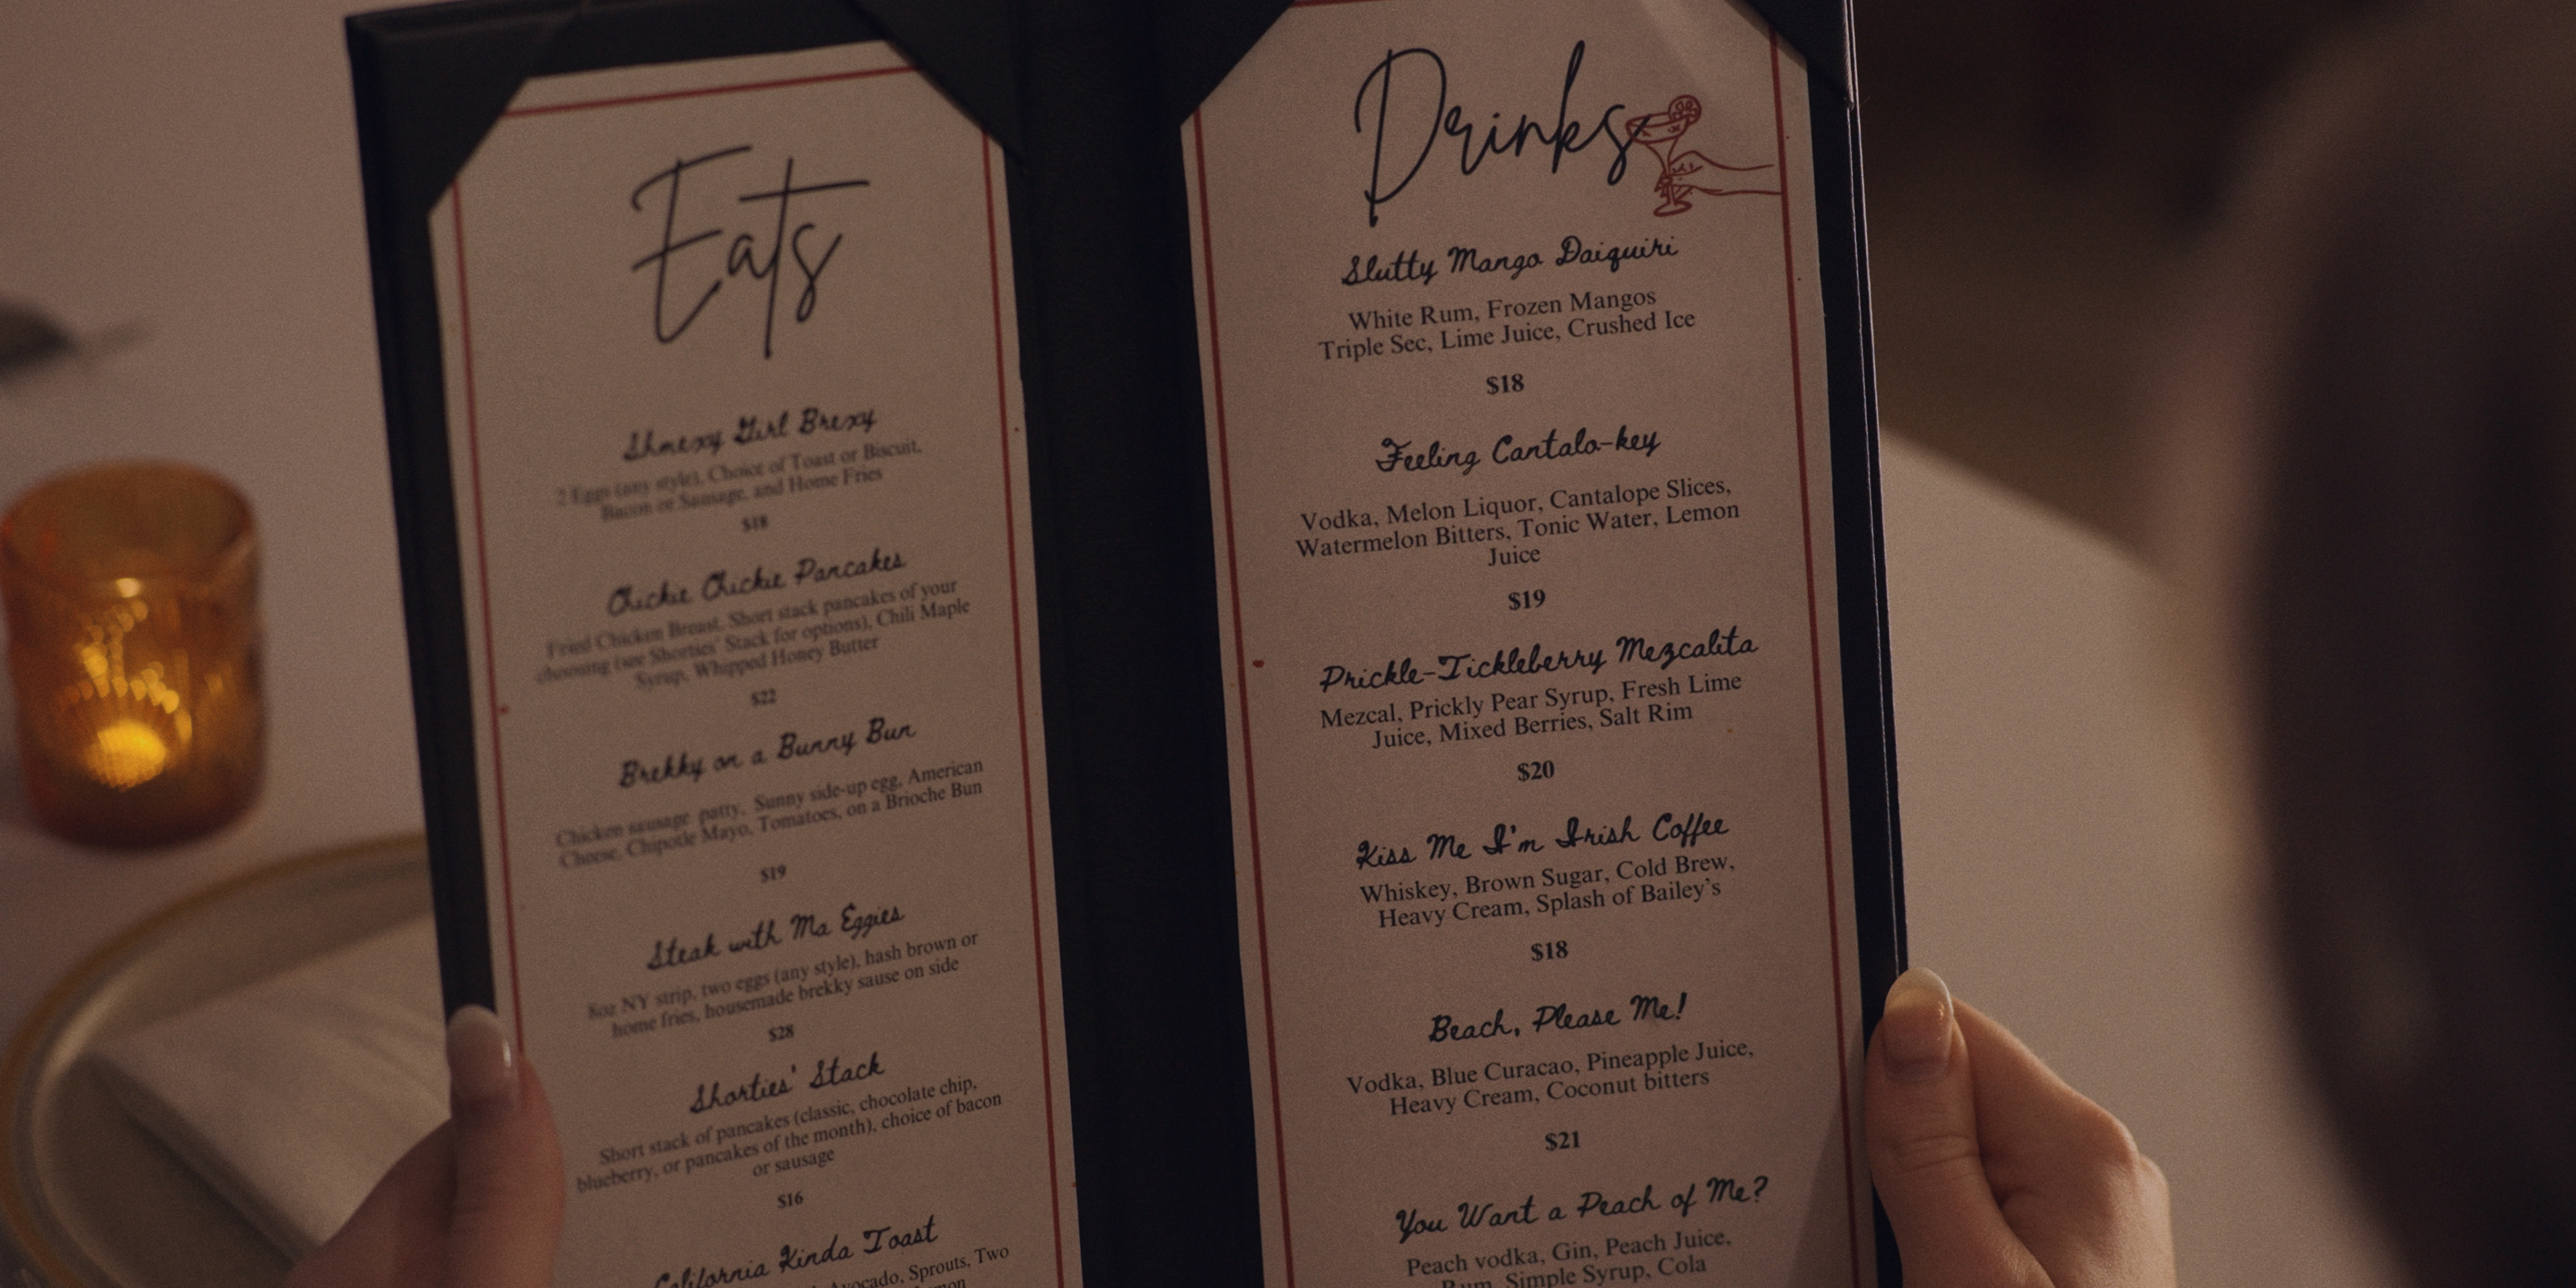 Eats
Shmexy Girl Brexy
2 Eggs (any style), Choice of Toast or Biscuit,
Bacon or Sausage, and Home Fries
$18
Chickie Chickie Pancakes
Fried Chicken Breast, Short stack pancakes of your
choosing (see Shorties' Stack for options), Chili Maple
Syrup, Whipped Honey Butter
$22
Brekky on a Bunny Bun
Chicken sausage patty, Sunny side-up egg, American
Cheese, Chipotle Mayo, Tomatoes, on a Brioche Bun
$19
Steak with Ma Eggies
8oz NY strip, two eggs (any style), hash brown or
home fries, housemade brekky sause on side
$28
Shorties' Stack
Short stack of pancakes (classic, chocolate chip,
blueberry, or pancakes of the month), choice of bacon
or sausage
$16
California Kinda Toast
Avocado, Sprouts, Two
Drinks
Slutty Mango Daiquiri
White Rum, Frozen Mangos
Triple Sec, Lime Juice, Crushed Ice
$18
Feeling Cantalo-key
Vodka, Melon Liquor, Cantalope Slices,
Watermelon Bitters, Tonic Water, Lemon
Juice
$19
Prickle-Tickleberry Mezcalita
Mezcal, Prickly Pear Syrup, Fresh Lime
Juice, Mixed Berries, Salt Rim
$20
Kiss Me I'm Irish Coffee
Whiskey, Brown Sugar, Cold Brew,
Heavy Cream, Splash of Bailey's
$18
Beach, Please Me!
Vodka, Blue Curacao, Pineapple Juice,
Heavy Cream, Coconut bitters
$21
You Want a Peach of Me?
Peach vodka, Gin, Peach Juice,
Rum, Simple Syrup, Cola